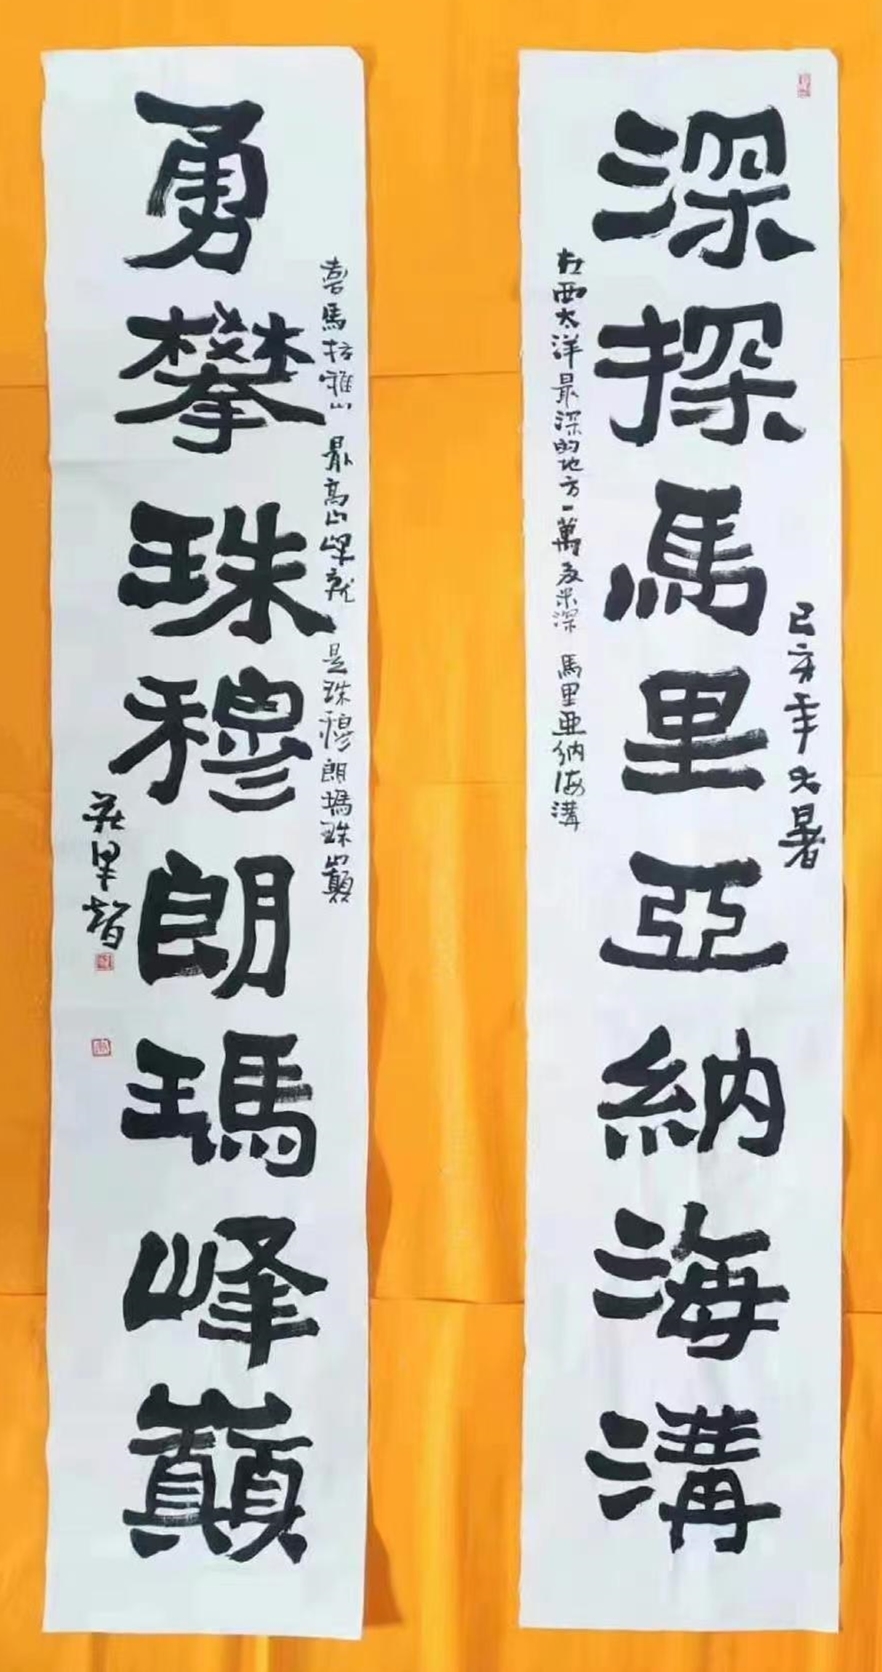 己亥年大暑
深探馬里亞納海溝
在西太洋最深的地方一萬多米深 馬里亞納海溝
喜馬拉雅山 最高山峰就 是珠穆朗瑪珠巔
勇攀珠穆朗瑪峰巔